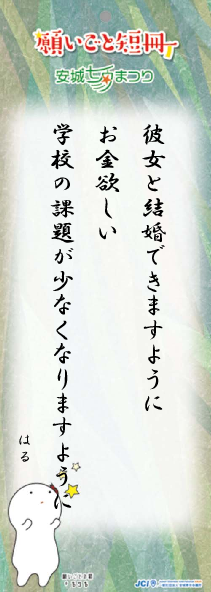 願いごと短冊
安城七夕まつり
彼女と結婚できますように
お金欲しい
学校の課題が少なくなりますように
はる
JCI